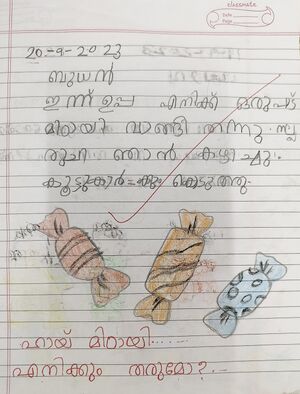 classmate
Date
Page
20-9-2023
ബുധൻ
ഇന്ന് ഉപ്പ എനിക്ക് ഒരുപാട്
മിഠായി വാങ്ങി തന്നു. നല്ല
രുചി ഞാൻ കഴിച്ചു.
കൂട്ടുകാർക്കും കൊടുത്തു.
ഹായ് മിഠായി......
എനിക്കും തരുമോ?.